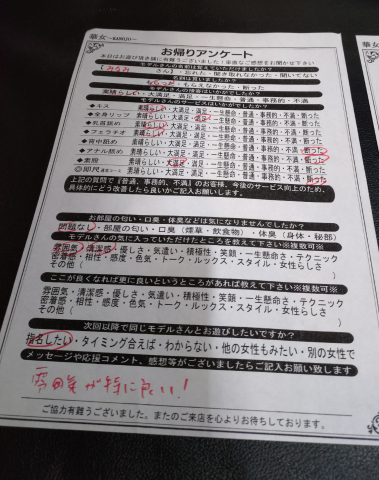 華女~KANOJO~
お帰りアンケート
本日はお遊び頂き誠に有難うございました！率直なご感想をお聞かせ下さい
モデルさんの名前は覚えていただけましたか？
さん】・忘れた・聞き取れなかった・聞いてない
名刺は貰いましたか？
もらった・もらえなかった・断った
モデルさんの接客はいかがでしたか？
素晴らしい・大満足・満足・一生懸命・普通・事務的・不満
モデルさんのサービスはいかがでしたか？
◆キス 素晴らしい・大満足・満足・一生懸命・普通・事務的・不満・断った
◆全身リップ 素晴らしい・大満足・満足・一生懸命・普通・事務的・不満・断った
素晴らしい・大満足・満足・一生懸命・普通・事務的・不満・断った
◆フェラチオ 素晴らしい・大満足・満足・一生懸命・普通・事務的・不満・断った
素晴らしい・大満足・満足・一生懸命・普通・事務的・不満・断った
◆アナル舐め 素晴らしい・大満足・満足・一生懸命・普通・事務的・不満・断った
◆素股 素晴らしい・大満足・満足・一生懸命・普通・事務的・不満・断った
素晴らしい・大満足・満足・一生懸命・普通・事務的・不満・断った
上記の質問で『普通、事務的、不満』のお客様、今後のサービス向上のため、
具体的にどう改善したら良いかご記入お願いします。
お部屋の匂い・口臭・体臭などは気になりませんでしたか？
問題なし・部屋の匂い・口臭（煙草・飲食物）・体臭（身体・秘部）
モデルさんの気に入っていただけたところを教えて下さい※複数可※
雰囲気・清潔感・優しさ・気遣い・積極性・笑顔・一生懸命さ・テクニック
密着感・相性・感度・色気・トーク・ルックス・スタイル・女性らしさ
その他（
ここが良くなれば更に良いというところがあれば教えて下さい※複数可※
雰囲気・清潔感・優しさ・気遣い・積極性・笑顔・一生懸命さ・テクニック
密着感・相性・感度・色気・トーク・ルックス・スタイル・女性らしさ
その他（
次回以降で同じモデルさんとお遊びしたいですか？
指名したい・タイミング合えば・わからない・他の女性もみたい・別の女性で
メッセージや応援コメント、感想等がございましたらご記入お願い致します
雰囲気が特に良い！
ご協力有難うございました。またのご来店を心よりお待ちしております。